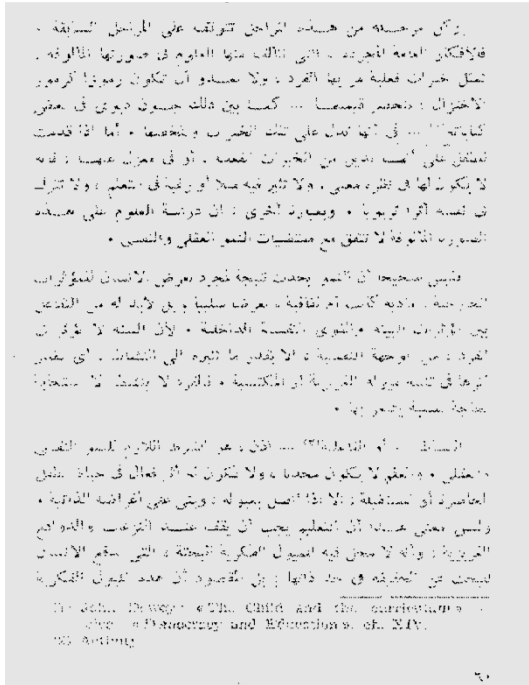 وكل مرحلة من هذه المراحل تتوقف على المراحل السابقة .
فالافكار العامة المجردة ، التي تتألف منها العلوم في صورتها المألوفة ،
تمثل خبرات فعلية مر بها الفرد ، ولا تعدو أن تكون رموزا كرموز
الاختزال ، تنحصر قيمتها ... كما بين ذلك جون ديوي في بعض
كتاباته(١) ... في أنها تدل على تلك الخبرات وتلخصها . أما اذا قدمت
للطفل على أنها بديل من الخبرات الفعلية ، أو في معزل عنها ؛ فانه
لا يكون لها في نظره معنى ، ولا تثير فيه ميلا أو رغبة في التعلم ، ولا تترك
في نفسه أثرا تربويا . وبعبارة أخرى : ان دراسة العلوم على هذه
الصورة المألوفة لا تتفق مع مقتضيات النمو العقلي والنفسي .
فليس صحيحا أن النمو يحدث نتيجة لمجرد تعرض الانسان للمؤثرات
الخارجية ، مادية كانت أم ثقافية ، تعرضا سلبيا ، بل لابد له من التفاعل
بين مؤثرات البيئة والقوى النفسية الداخلية . لأن البيئة لا تؤثر في
الفرد ، من الوجهة النفسية ، الا بقدر ما تثيره الى النشاط ، أي بقدر
أثرها في تنبيه ميوله الغريزية أو المكتسبة . فالفرد لا ينشط الا استجابة
لحاجة نفسية يشعر بها .
النشاط ، أو الفاعلية(٢) ... اذن ، هو الشرط اللازم للنمو النفسي
والعقلي . والتعلم لا يكون مجديا ، ولا يكون له أثر فعال في حياة الطفل
الحاضرة أو المستقبلة ، الا اذا اتصل بميوله ، وبني على أغراضه الذاتية .
وليس معنى هذا أن التعليم يجب أن يقف عند النزعات والدوافع
الغريزية ، وأنه لا محل فيه للميول الفكرية البحتة ، التي تدفع الانسان
للبحث عن الحقيقة في حد ذاتها ؛ بل المقصود أن هذه الميول الفكرية
(1) John Dewey: «The Child and the curriculum» .
also : «Democracy and Education», ch. XIV.
(2) Activity
٦٠